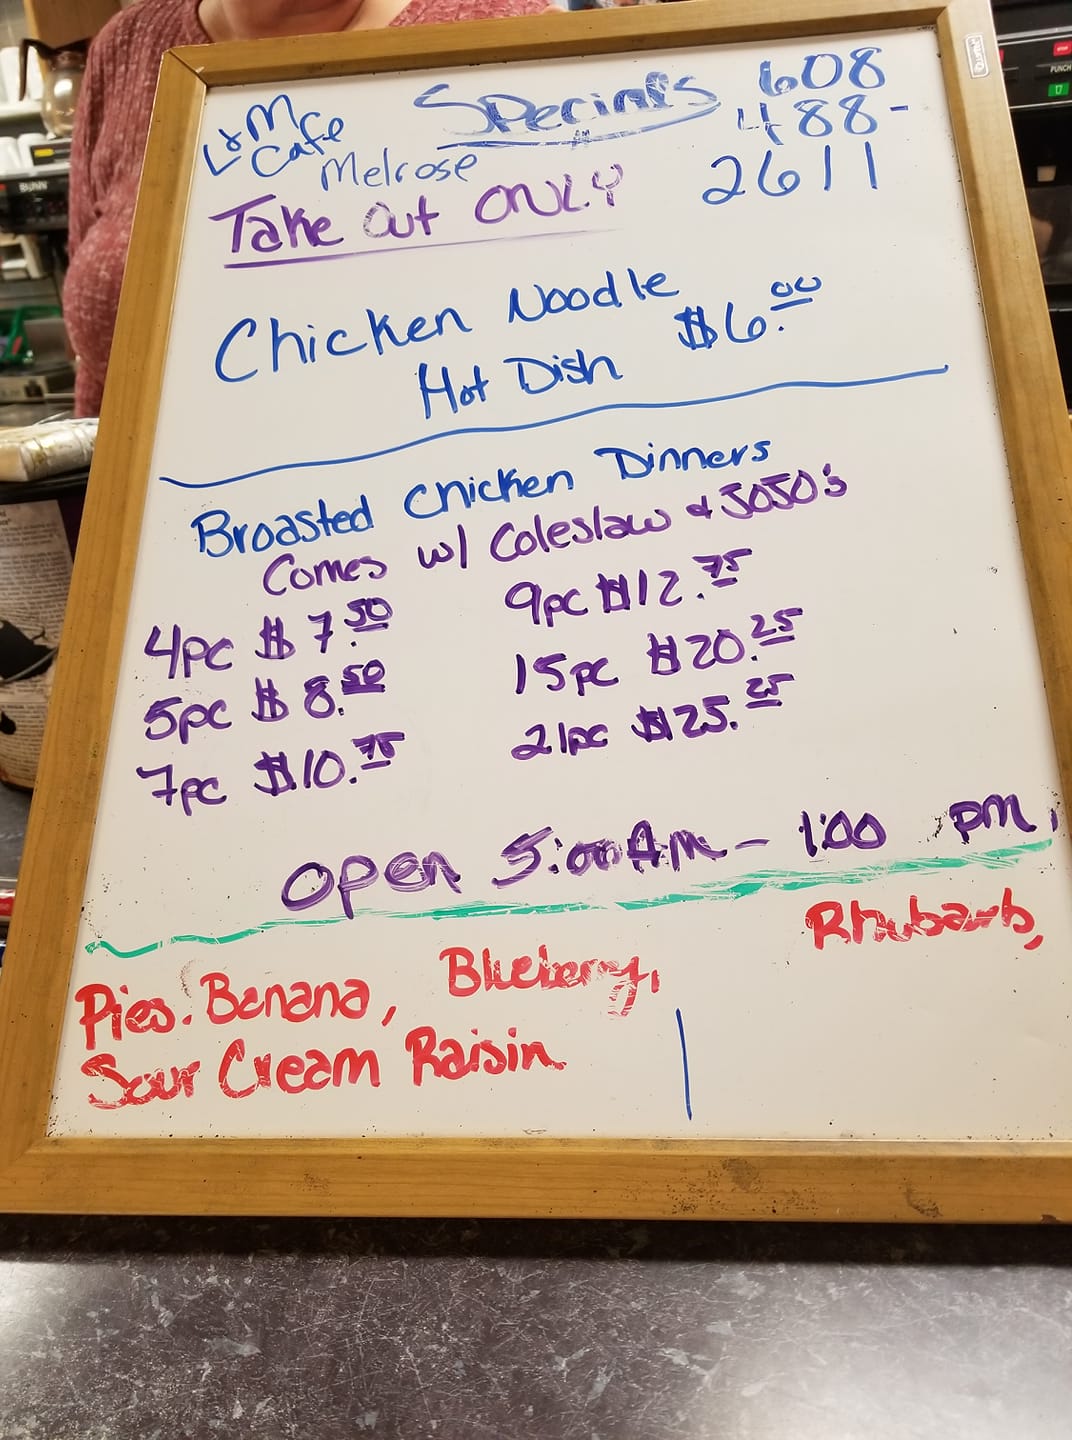 L&M Cafe Specials 608
Melrose 488-
Take Out ONLY 2611
Chicken Noodle
Hot Dish $6.00
Broasted Chicken Dinners
Comes w/ Coleslaw & JoJo's
4pc $7.50 9pc $12.75
5pc $8.50 15pc $20.25
7pc $10.75 21pc $25.25
Open 5:00 AM - 1:00 pm
Pies. Banana, Blueberry, Rhubarb,
Sour Cream Raisin
BUNN
PUNCH
Quartet